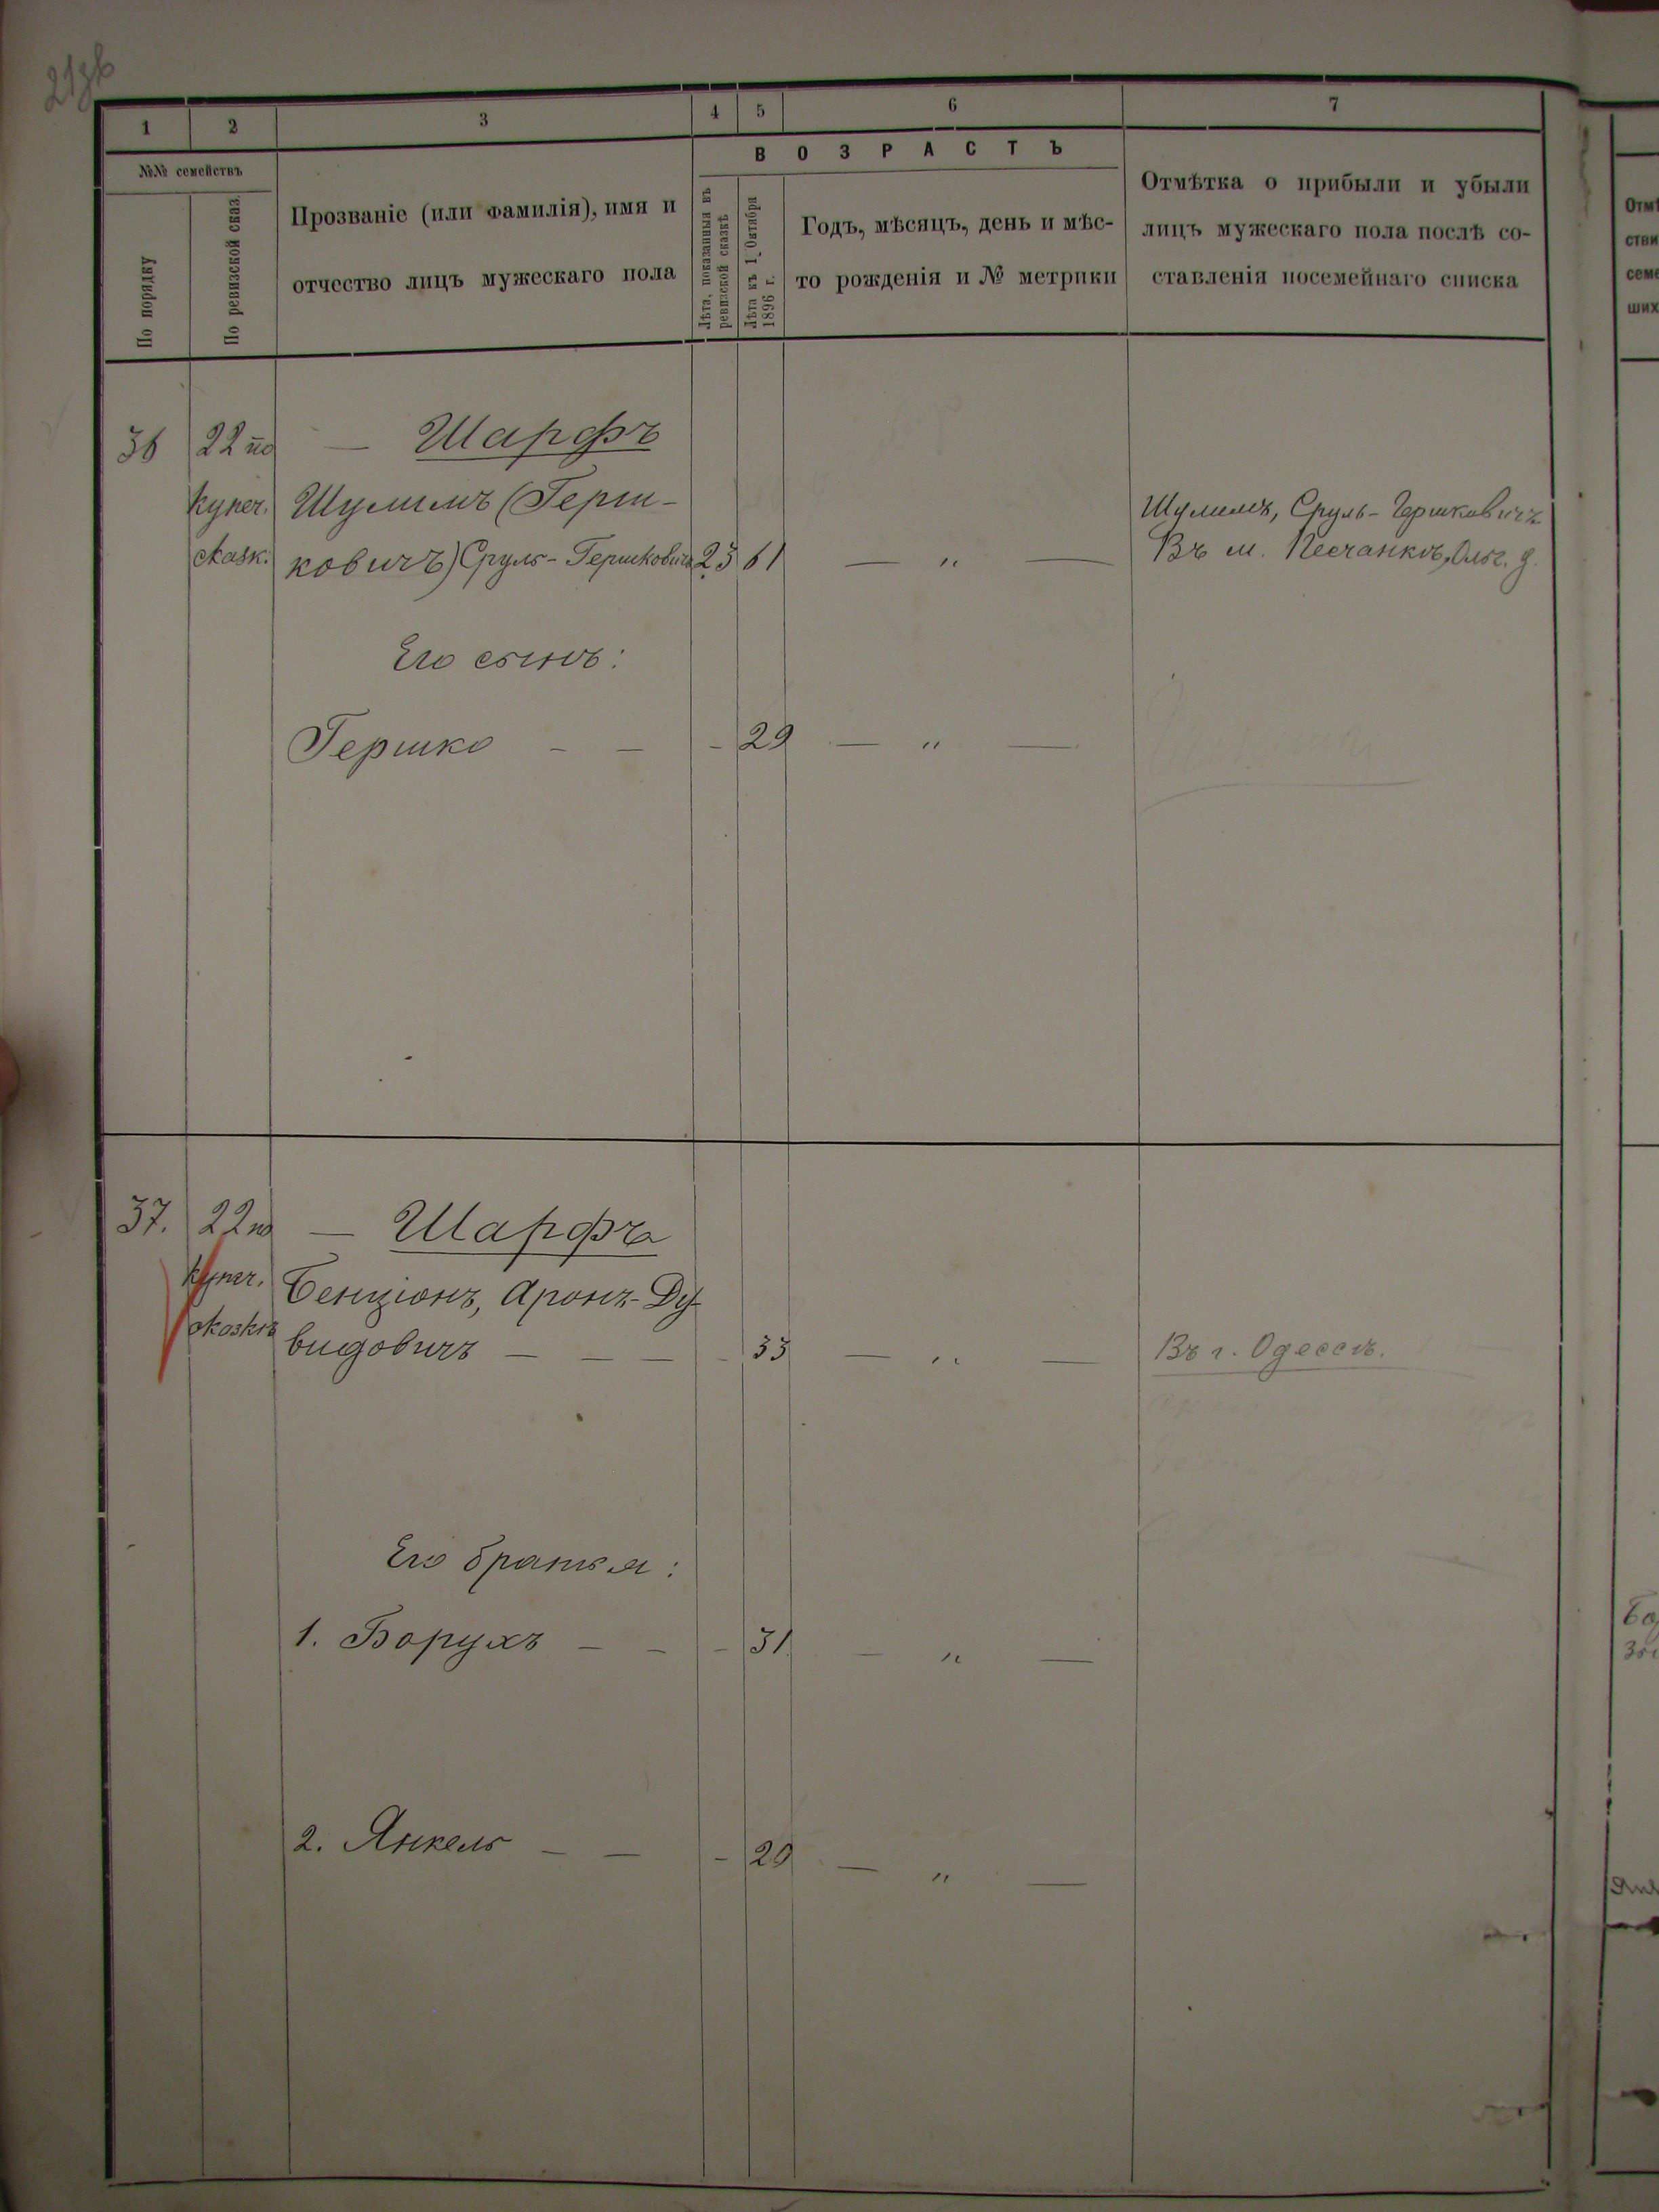 1 2 3 4 5 6 7
№№ семействъ
По порядку
По ревизской сказ.
Прозваніе (или фамилія), имя и
отчество лицъ мужескаго пола
ВОЗРАСТЪ
Лѣта, показанныя въ
ревизской сказкѣ
Лѣта къ 1 Октября
1896 г.
Годъ, мѣсяцъ, день и мѣс-
то рожденія и № метрики
Отмѣтка о прибыли и убыли
лицъ мужескаго пола послѣ со-
ставленія посемейнаго списка
36 22 по — Шарфъ
купеч. Шулимъ (Герш-
сказк. ковичъ) Сруль-Гершковичъ 23 61 — „ —
Шулимъ, Сруль-Гершковичъ
Въ м. Песчанкѣ, Ольг. д.
Его сынъ:
Гершко - - - 29 — „ —
37. 22 по — Шарфъ
купеч. Бенціонъ, Аронъ-Ду-
сказкѣ видовичъ — — — - 33 — „ — Въ г. Одессѣ.
Его братья:
1. Борухъ - - - 31 — „ —
2. Янкель - - - 29 — „ —